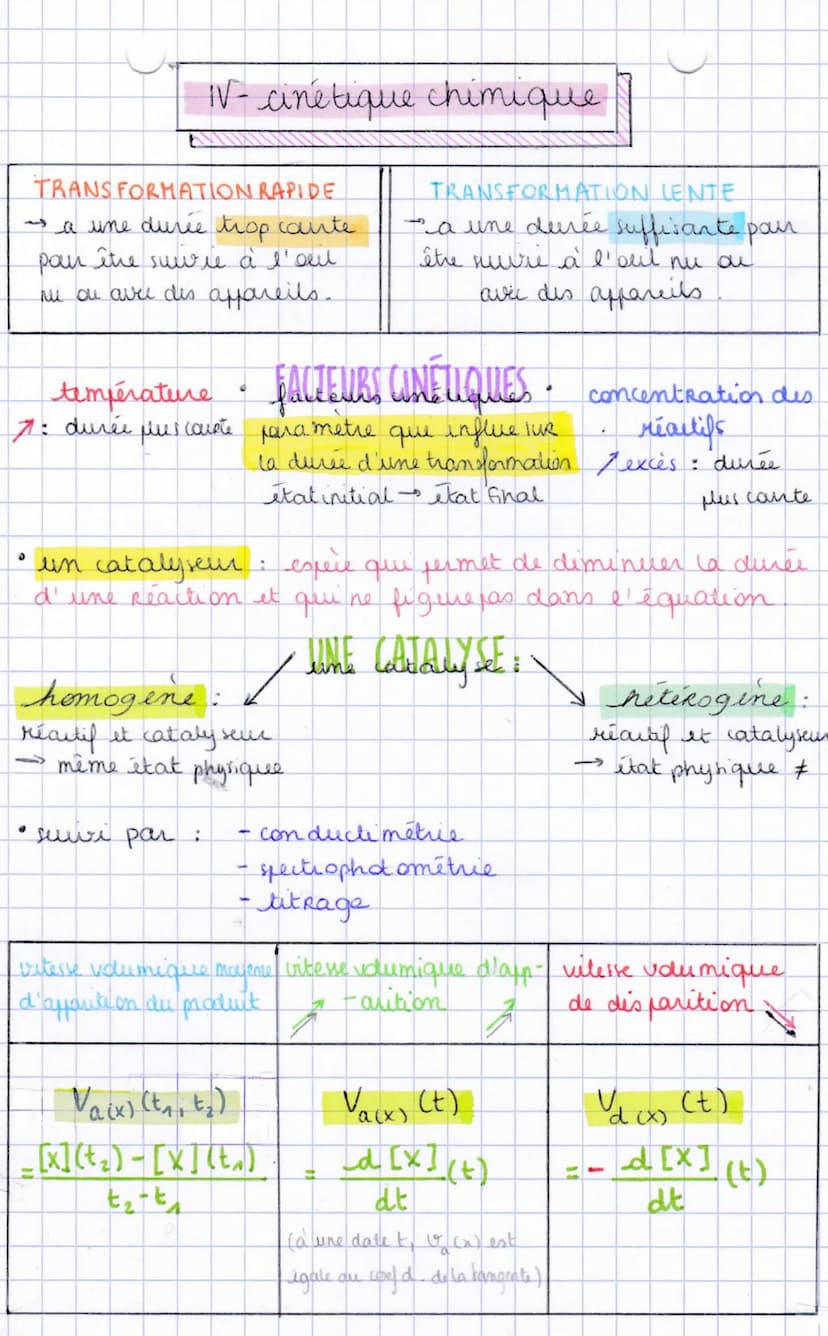 IV - cinétique chimique
TRANSFORMATION RAPIDE
→ a une durée trop courte
pour être suivie à l'oeil
nu ou avec des appareils.
TRANSFORMATION LENTE
→ a une durée suffisante pour
être suivie à l'oeil nu ou
avec des appareils.
température
↗ : durée plus courte
• FACTEURS CINÉTIQUES •
facteurs cinétiques
paramètre qui influe sur
la durée d'une transformation
état initial → état final
concentration des
réactifs
↗ excès : durée
plus courte
• un catalyseur : espèce qui permet de diminuer la durée
d'une réaction et qui ne figure pas dans l'équation.
UNE CATALYSE :
une catalyse :
homogène :
réactif et catalyseur
→ même état physique
hétérogène :
réactif et catalyseur
→ état physique ≠
• suivi par : - conductimétrie
- spectrophotométrie
- titrage
vitesse volumique moyenne
d'apparition du produit
vitesse volumique d'app-
-arition
vitesse volumique
de disparition
Va(x) (t1, t2)
= [x](t2) - [x](t1)
t2 - t1
Va(x) (t)
= d[x] (t)
dt
(à une date t, va(x) est
égale au coef d. de la tangente)
Vd(x) (t)
= - d[x] (t)
dt